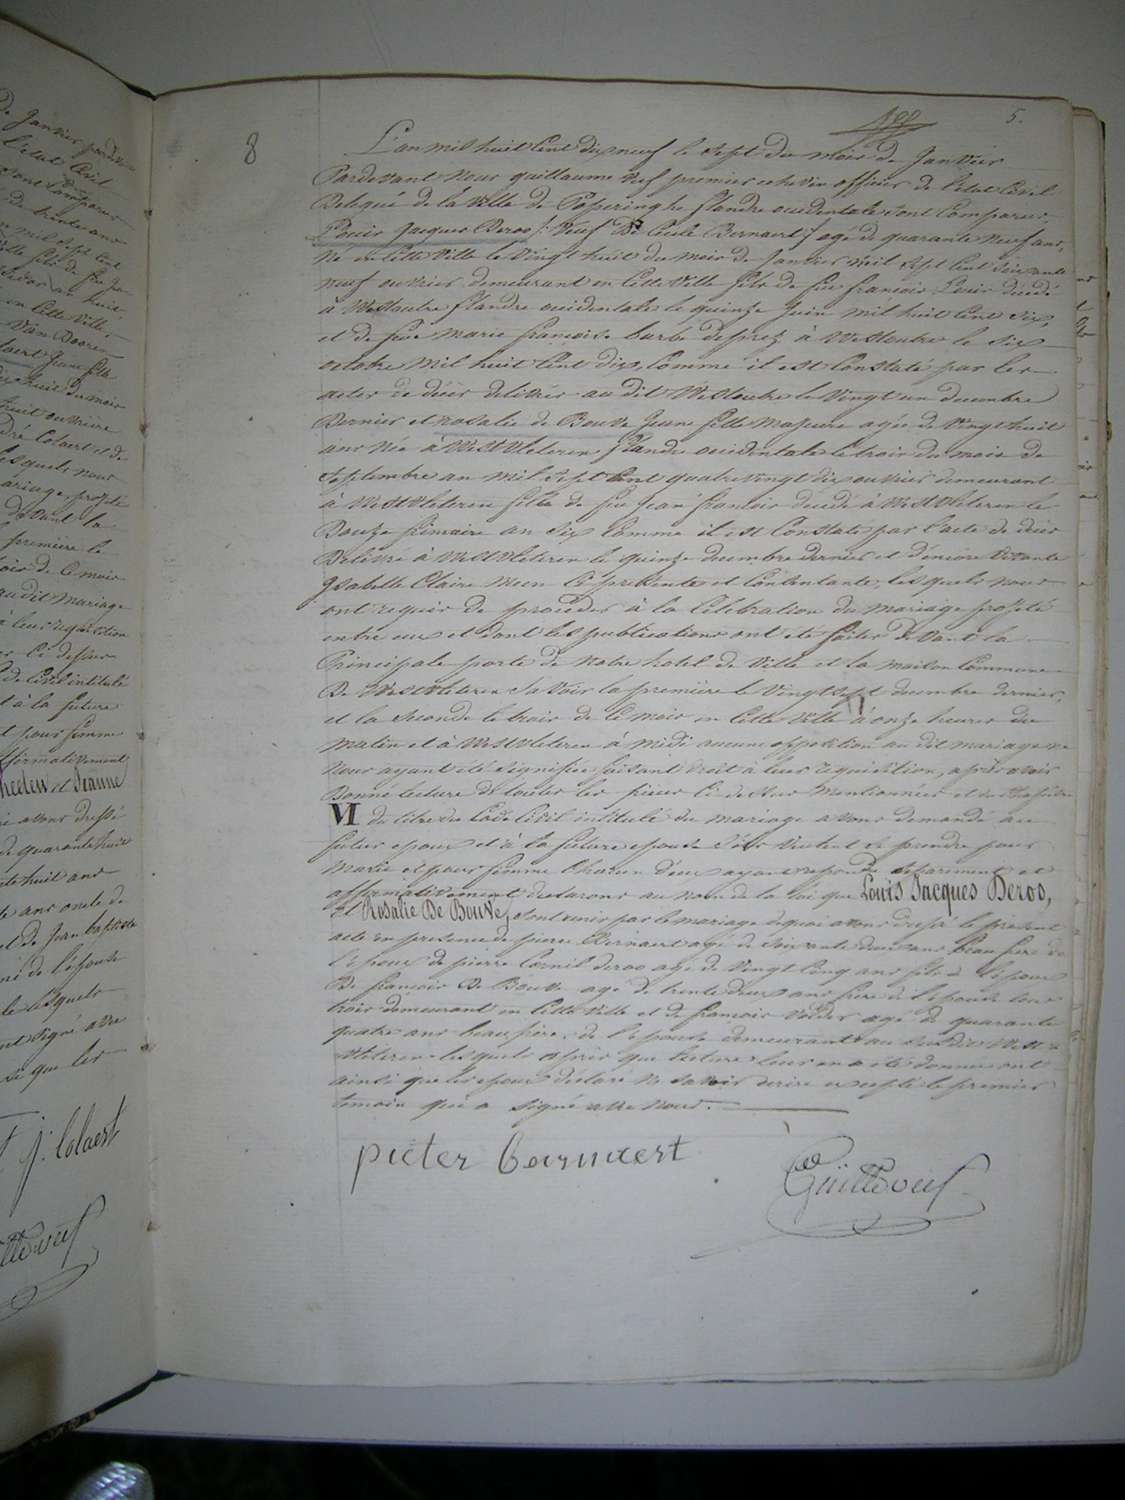 de Janvier pardeva
l'etat Civil
sont Comparus
de trente ans
mil sept Cent
en Cette Ville
Van Booren
Colaert Jeune fille
dix huit du mois
huit ouvriere
dré Colaert et de
lesquels nous
ariage projeté
devant la
premiere le
ois de Ce mois
au dit mariage
à leur requisition
Ci dessus
de Civil intitulé
t à la future
t pour femme
affirmativement
et Jeanne
avons dressé
de quarante huit
huit ans
ans oncle de
et de Jean baptiste
de l'épouse
lesquels
ont signé avec
que les
J. Colaert
8
5.
L'an mil huit Cent dix neuf le Sept du mois de Janvier
Pardevant Nous guillaume veuf premier echevin officier de l'etat Civil
Delegué de la Ville de Poperinghe flandre occidentale sont Comparus
Louis Jacques Deroo /: Veuf De Cecile Bernaert :/ agé de quarante Neuf ans,
Né en Cette Ville le Vingt huit du mois de Janvier mil sept Cent soixante
neuf ouvrier demeurant en Cette Ville fils de feu françois Louis décédé
à Westoutre flandre occidentale le quinze Juin mil huit Cent Six,
et de feue marie françoise barbe Desprez à Westoutre le Six
octobre mil huit Cent dix, Comme il est Constaté par les
actes de décès delivrés au dit Westoutre le Vingt un decembre
Dernier et Rosalie de Bouve Jeune fille Majeure agée de Vingt huit
ans Née à Westvleteren flandre occidentale le trois du mois de
Septembre an mil sept Cent quatrevingt dix ouvriere demeurant
à Westvleteren fille de feu Jean francois decedé à Westvleteren le
Douze frimaire an Six Comme il est Constaté par l'acte de décès
Delivré à Westvleteren le quinze decembre dernier et d'encore vivante
Isabelle Claire Ci presente et Consentante, lesquels nous
ont requis de proceder à la Célébration du mariage projeté
entre eux et dont les publications ont été faites devant la
Principale porte de notre hotel de Ville et la maison Commune
De Westvleteren Savoir la premiere le Vingt sept decembre dernier,
et la seconde le trois de Ce mois en Cette Ville à onze heures du
matin et à Westvleteren à midi aucune opposition au dit mariage ne
Nous ayant été signifiée faisant droit à leur requisition, après avoir
Donné lecture de toutes les pieces Ci dessus mentionnées et du chapitre
VI du titre du Code Civil intitulé du mariage avons demandé au
futur epoux et à la future epouse S'ils veulent se prendre pour
Marie et pour femme Chacun d'eux ayant repondu séparement et
affirmativement declarons au nom de la loi que Louis Jacques Deroo,
et Rosalie De Bouve, sont unis par le mariage de quoi avons dressé le présent
acte en presence de pierre Bernaert agé de soixante deux ans beau frere de
l'epoux de pierre Cornil deroo agé de Vingt Cinq ans fils de l'epoux
De françois De Bouve agé de trente deux ans frere de l'epouse tous
trois demeurant en Cette Ville et de françois Velder agé de quarante
quatre ans beau frere de l'epouse demeurant au dit West
vleteren lesquels après que lecture leur en a été donnee ont
ainsi que les epoux déclaré ne savoir ecrire excepté le premier
temoin qui a signé avec nous.
pieter Bernaert
Guill Veuf